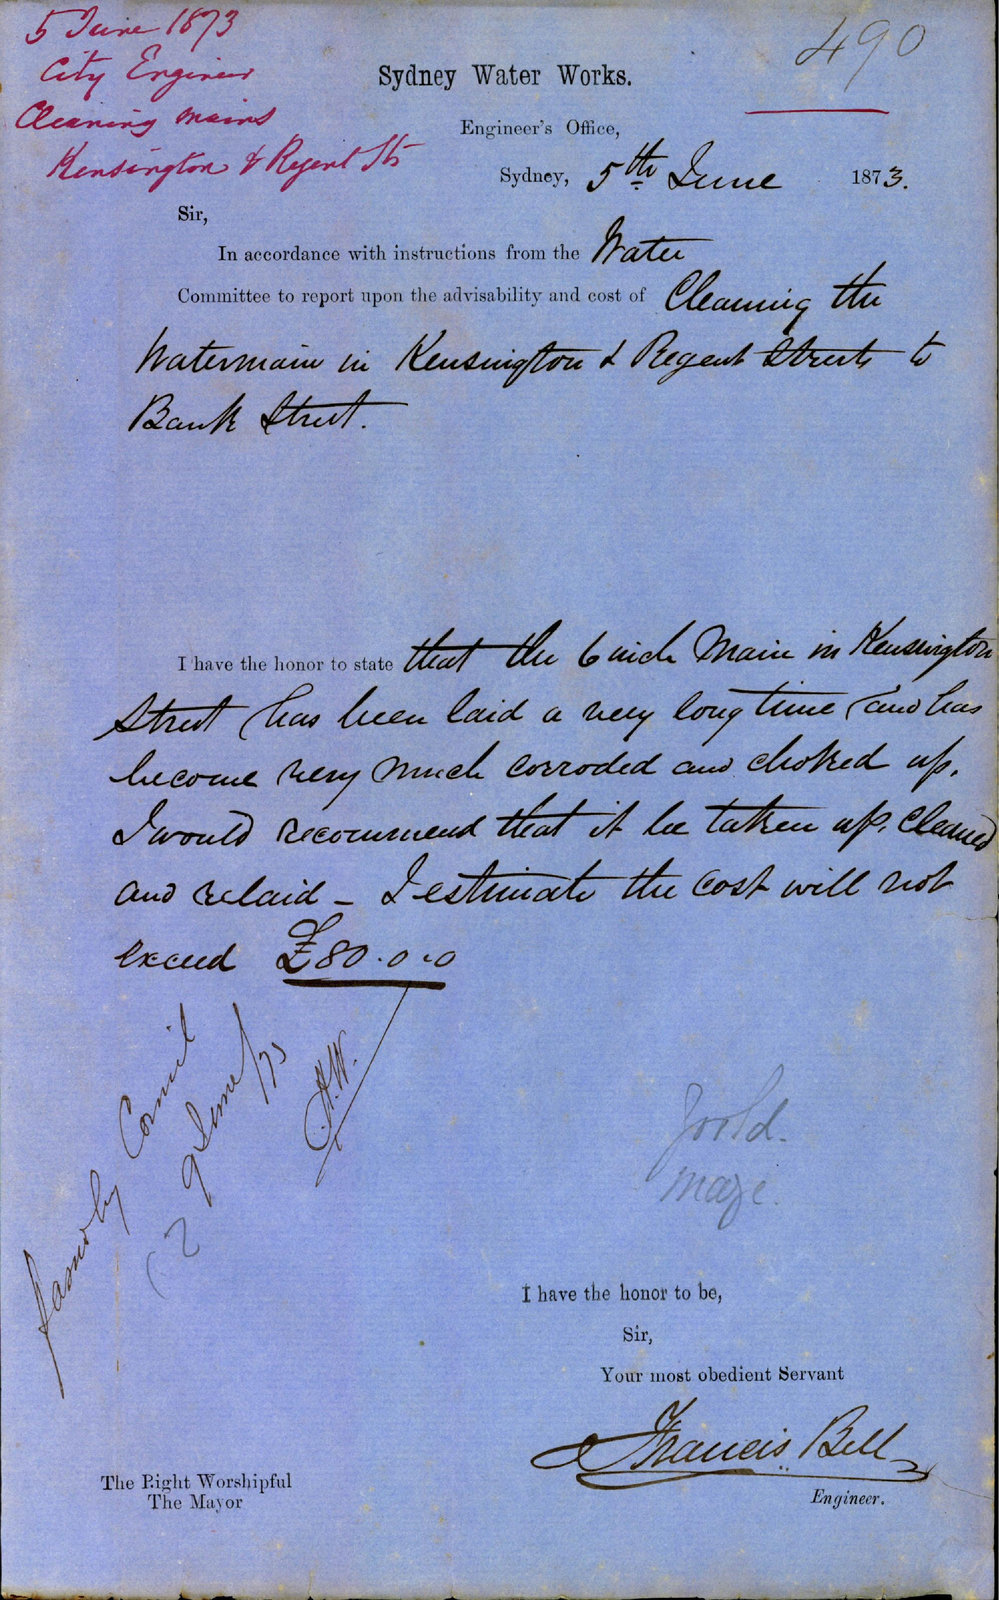 5 June 1873
City Engineer
Cleaning mains
Kensington & Regent Sts
490
Sydney Water Works.
Engineer's Office,
Sydney, 5th June 1873.
Sir,
In accordance with instructions from the Water
Committee to report upon the advisability and cost of Cleaning the
Watermain in Kensington & Regent Streets to
Bank Street.
I have the honor to state that the 6 inch Main in Kensington
Street has been laid a very long time and has
become very much corroded and choked up.
I would recommend that it be taken up, cleaned
and relaid - I estimate the cost will not
exceed £80.0.0
Passed by Council
9 June/73
I have the honor to be,
Sir,
Your most obedient Servant
Francis Bell
Engineer.
The Right Worshipful
The Mayor